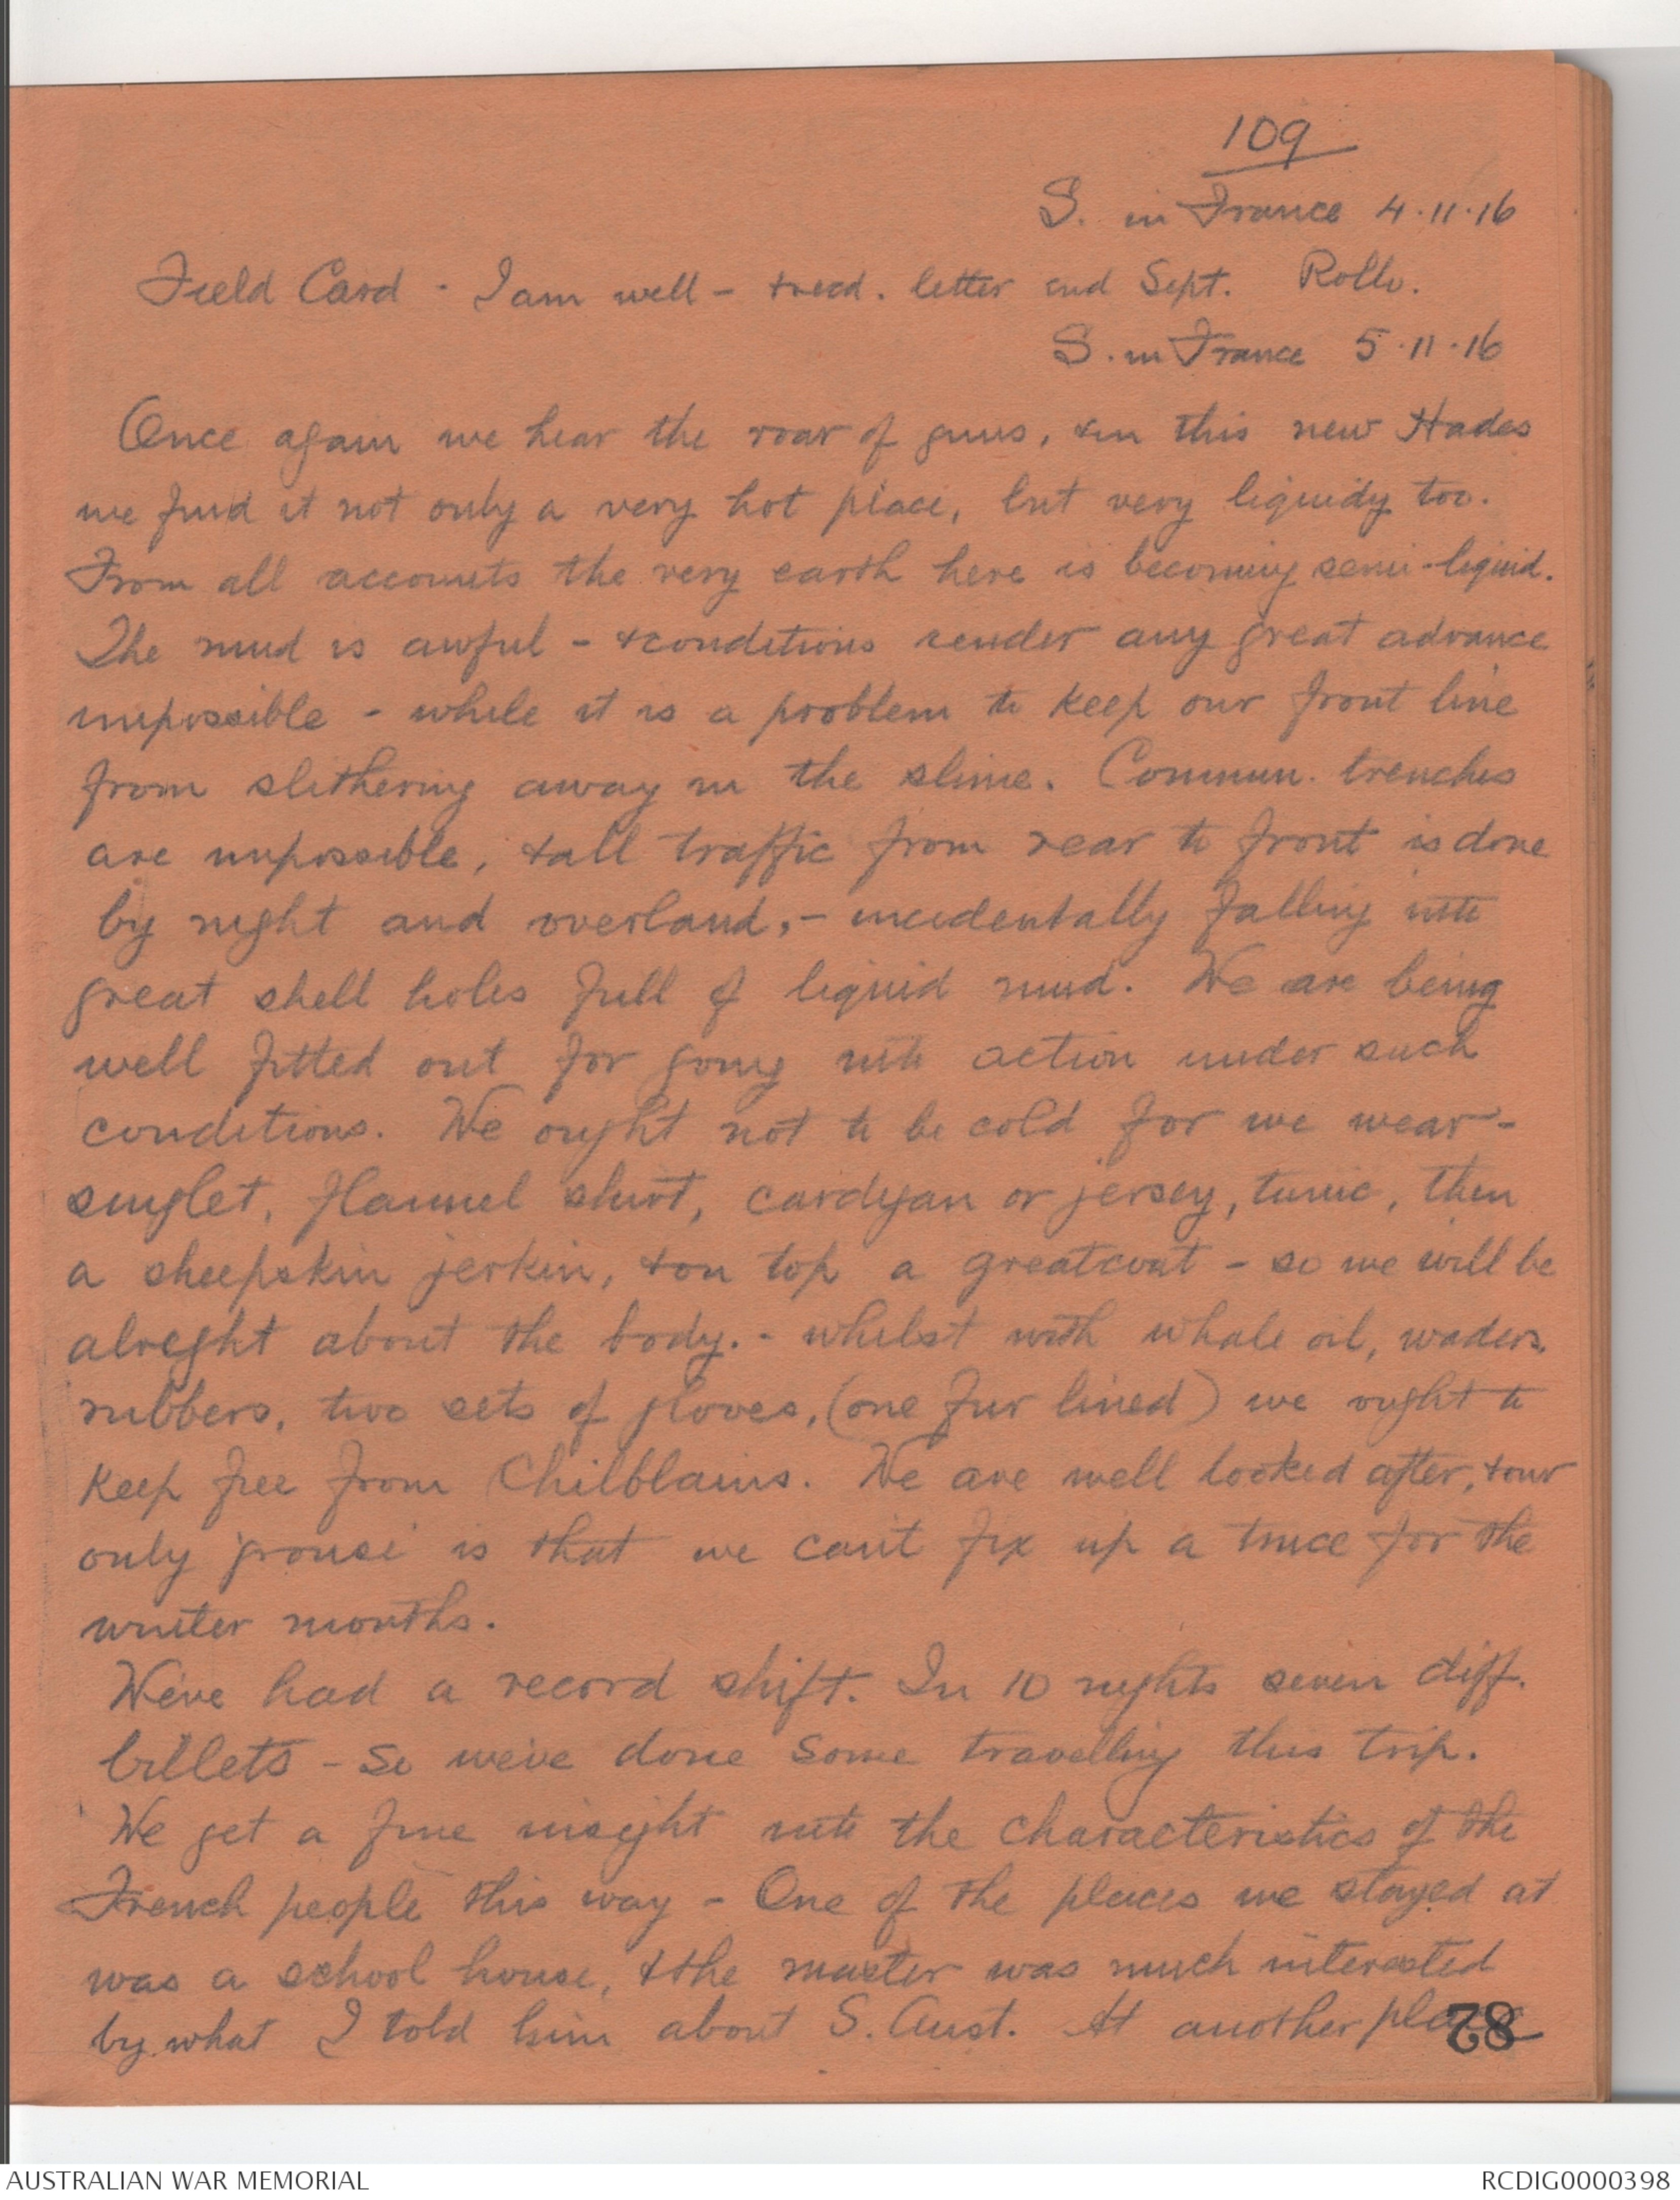 109
S. in France 4.11.16
Field Card - I am well - & recd. letter end Sept. Rollo.
S. in France 5.11.16
Once again we hear the roar of guns, & in this new Hades
we find it not only a very hot place, but very liquidy too.
From all accounts the very earth here is becoming semi-liquid.
The mud is awful - & conditions render any great advance
impossible - while it is a problem to keep our front line
from slithering away in the slime. Commun. trenches
are impossible, & all traffic from rear to front is done
by night and overland, - incidentally falling into
great shell holes full of liquid mud. We are being
well fitted out for going into action under such
conditions. We ought not to be cold for we wear -
singlet, flannel shirt, cardigan or jersey, tunic, then
a sheepskin jerkin, & on top a greatcoat - so we will be
alright about the body. - whilst with whale oil, waders,
rubbers, two sets of gloves, (one fur lined) we ought to
keep free from Chilblains. We are well looked after, & our
only 'grouse' is that we can't fix up a truce for the
winter months.
We've had a record shift. In 10 nights seven diff.
billets - so we've done some travelling this trip.
We get a fine insight into the characteristics of the
French people this way - One of the places we stayed at
was a school house, & the master was much interested
by what I told him about S. Aust. At another place
82
AUSTRALIAN WAR MEMORIAL
RCDIG0000398